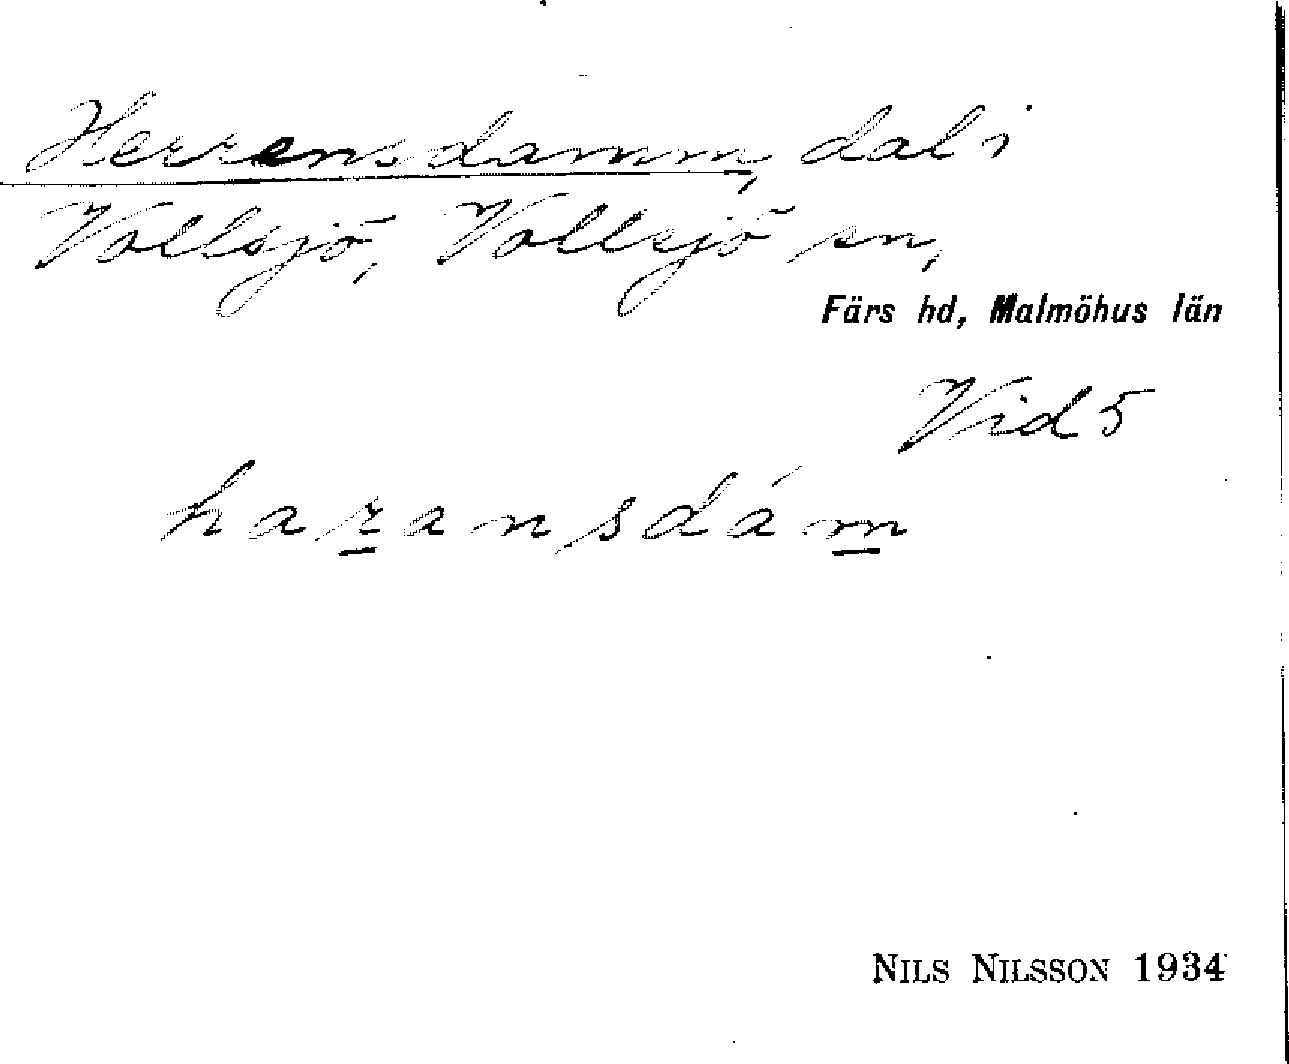 Herrensdamm, dal i
Vollsjö, Vollsjö sn,
Färs hd, Malmöhus län
Vid 5
haransdám
NILS NILSSON 1934